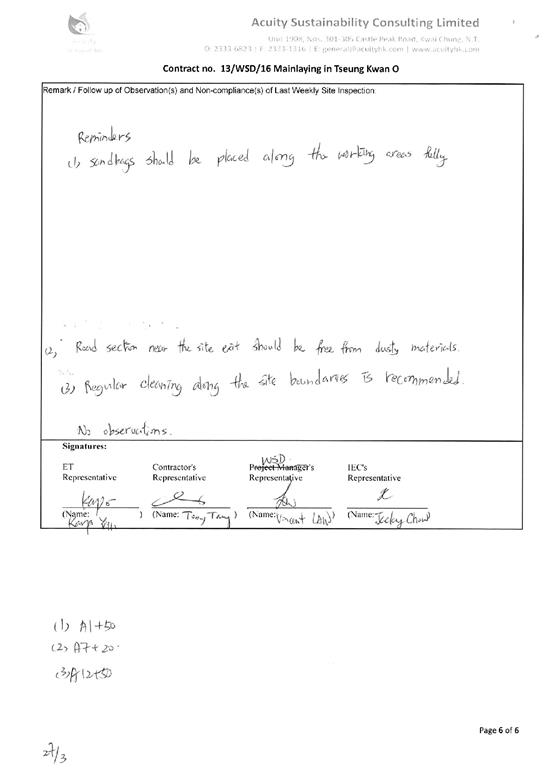 Acuity Sustainability Consulting Limited
Unit 1908, Nos. 301-305 Castle Peak Road, Kwai Chung, N.T.
O: 2333-6823 | F: 2333-1316 | E: general@acuityhk.com | www.acuityhk.com
Contract no. 13/WSD/16 Mainlaying in Tseung Kwan O
Remark / Follow up of Observation(s) and Non-compliance(s) of Last Weekly Site Inspection:
Reminders
(1) Sandbags should be placed along the working areas fully
(2) Road section near the site exit should be free from dusty materials.
(3) Regular cleaning along the site boundaries is recommended.
No observations.
Signatures:
WSD
ET Contractor's Project Manager's IEC's
Representative Representative Representative Representative
(Name: ) (Name: Tony Tang) (Name: Vincent LAW) (Name: Jacky Chow)
(1) A1+50
(2) A7+20
(3) A12+50
Page 6 of 6
27/3